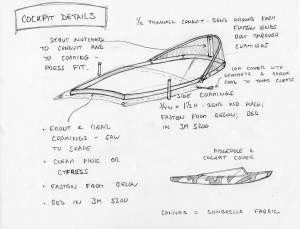 COCKPIT DETAILS
1/2 THINWALL CONDUIT - BEND AROUND FORM
FLATTEN ENDS
BOLT THROUGH
COAMINGS
STRUT NOTCHED
TO CONDUIT AND
TO COAMING -
PRESS FIT.
COVER WITH
GROMMETS & SHOCK
CORD TO THUMB CLEATS
SIDE COAMINGS
BEND IN PLACE;
FASTEN FROM BELOW; BED
IN 3M 5200
• FRONT & REAR
COAMINGS - SAW
TO SHAPE
• CLEAR PINE OR
CYPRESS
• FASTEN FROM BELOW
• BED IN 3M 5200
RIDGEPOLE &
COCKPIT COVER
CANVAS = SUNBRELLA FABRIC